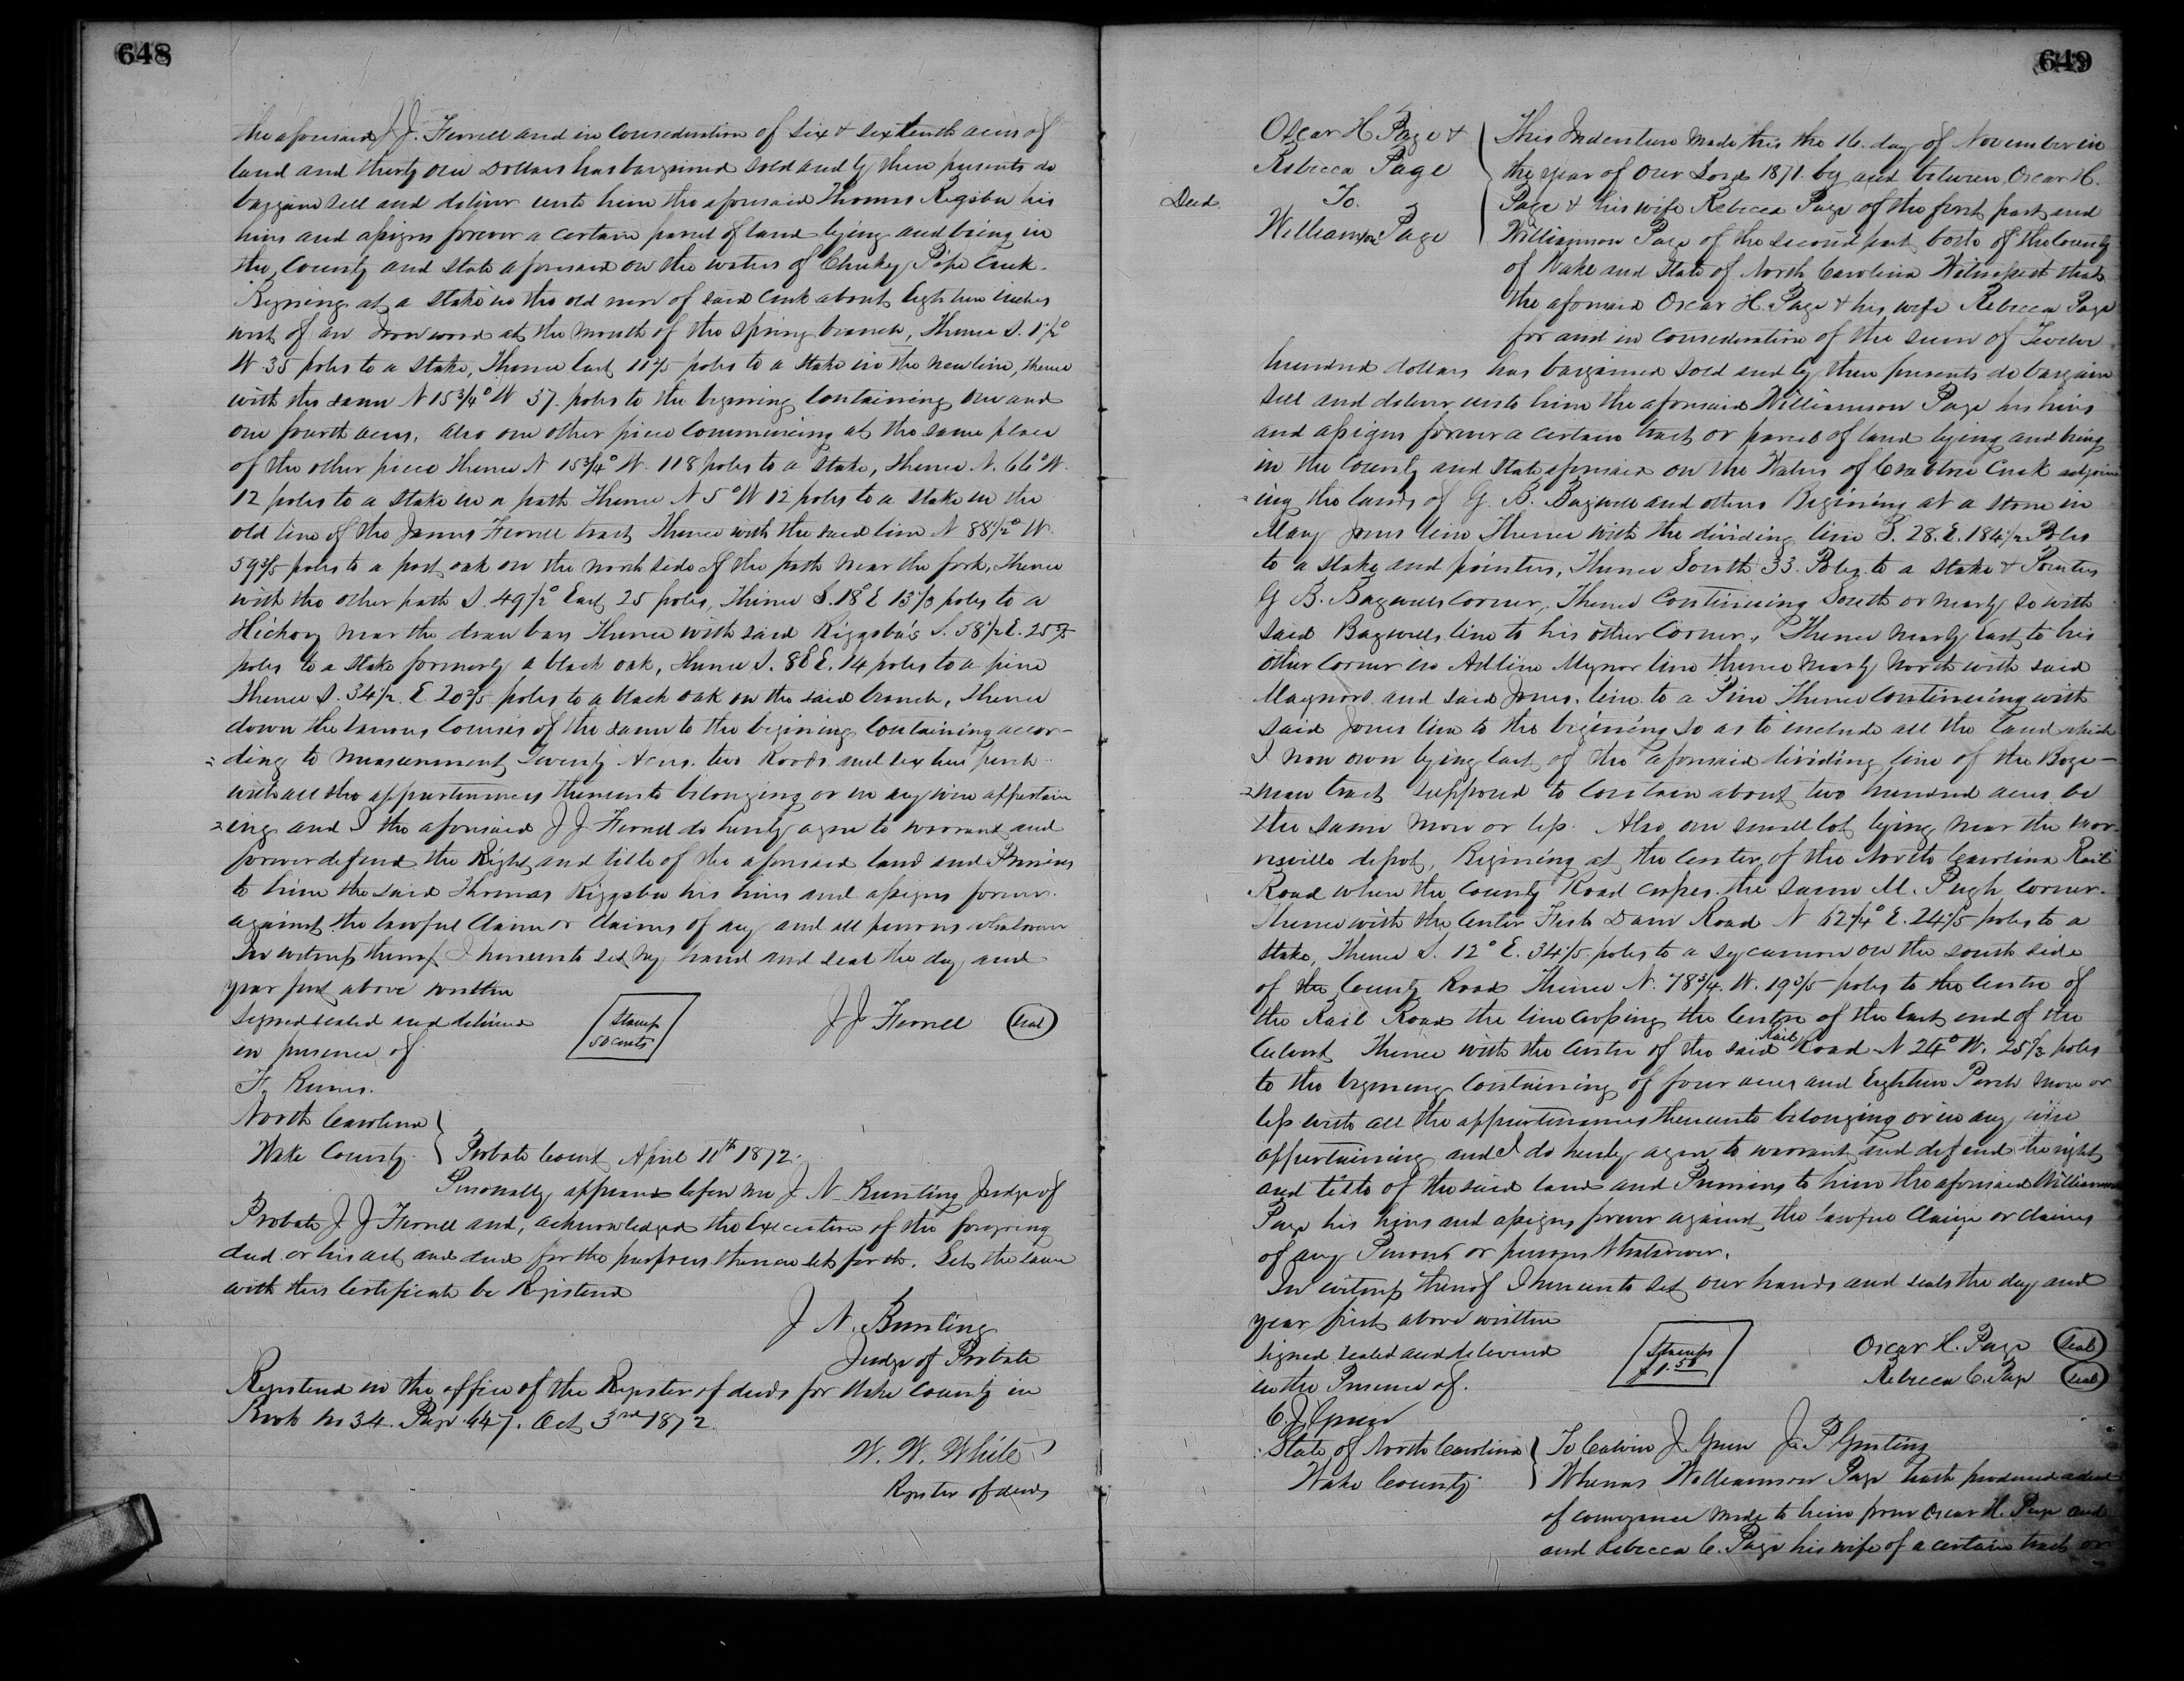 648
the aforesaid J J. Ferrell and in Consideration of six & six tenth acres of
land and thirty one Dollars has bargained sold and by these presents do
bargain sell and deliver unto him the aforesaid Thomas Rigsbee his
heirs and assigns forever a certain parcel of land lying and being in
the County and State aforesaid on the waters of Creek.
Begining at a stake in the old run of said creek about Eighteen inches
west of an Iron wood at the mouth of the Spring branch, Thence S. 1 1/2°
W 35 poles to a stake, Thence East 11 2/5 poles to a stake in the new line, thence
with the same N 15 3/4° W 37. poles to the begining containing one and
one fourth acres, also one other piece Commencing at the same place
of the other piece thence N 15 3/4° W. 118 poles to a stake, thence N. 66° W.
12 poles to a stake in a path Thence N 5° W 12 poles to a stake in the
old line of the James Ferrell tract Thence with the said line N 88 1/2° W.
59 3/5 poles to a post oak on the north side of the path near the fork, Thence
with the other path S. 49 1/2° East 25 poles, Thence S. 18° E 13 1/3 poles to a
Hickory near the draw bars Thence with said Riggsbee's S. 58 1/2 E. 25 2/5
poles to a stake formerly a black oak, thence S. 8° E. 14 poles to a pine
Thence S. 34 1/2. E. 20 2/5 poles to a black oak on the said branch, Thence
down the various Courses of the same to the begining Containing accor-
ding to measurement Twenty Acres. two Roods and sixteen perch
with all the appurtenances thereunto belonging or in any wise appertain
ing and I the aforesaid J J Ferrell do hereby agree to warrant and
forever defend the Right and title of the aforesaid land and Premises
to him the said Thomas Riggsbee his heirs and assigns forever.
against the lawful Claim or Claims of any and all persons whatsoever
In witness thereof I hereunto set my hand and seal the day and
year first above written
signed sealed and delivered
in presence of
Stamp
50 cents
J J Ferrell (seal)
North Carolina
Wake County. Probate Court April 11th 1872.
Personally appeared before me J N Bunting Judge of
Probate J J Ferrell and, acknowledged the Execution of the foregoing
deed or his act and deed for the purposes therein set forth. Let the same
with this Certificate be Registered
J N. Bunting
Judge of Probate
Registered in the office of the Register of deeds for Wake County in
Book No 34. Page 647. Oct 3rd 1872.
W. W. White
Register of deeds
649
Oscar H Page &
Rebecca Page
Deed To.
Williamson Page
This Indenture made this the 16. day of November in
the year of Our Lord 1871. by and between, Oscar H.
Page & his wife Rebecca Page of the first part and
Williamson Page of the second part both of the County
of Wake and State of North Carolina Witnesseth that
the aforesaid Oscar H. Page & his wife Rebecca Page
for and in consideration of the sum of Twelve
hundred dollars has bargained sold and by these presents do bargain
sell and deliver unto him the aforesaid Williamson Page his heirs
and assigns forever a certain tract or parcel of land lying and being
in the County and State aforesaid on the Waters of Crabtree Creek adjoin
ing the lands of G. B. Bagwell and others Begining at a stone in
Mary Jones line Thence with the dividing line S. 28. E. 184 1/2 Poles
to a stake and pointers, Thence South 33. Poles to a stake & Pointers
G B. Bagwells Corner, Thence Continuing South or nearly so with
said Bagwells line to his other Corner, Thence nearly East to his
other Corner in Adline Mynor line thence nearly North with said
Maynors and said Jones. line. to a Pine Thence Continueing with
said Jones line to the begining so as to include all the land which
I now own lying East of the aforesaid dividing line of the Boge-
man tract supposed to contain about two hundred acres be
the same more or less. Also one small lot lying near the Mor-
risville depot, Begining at the Center, of the North Carolina Rail
Road where the County Road Crosses the same M. Pugh Corner.
Thence with the Center Fish Dam Road N 62 1/4° E. 24 4/5 poles to a
stake, Thence S. 12° E. 34 1/5 poles to a sycamore on the south side
of the County Road Thence N. 78 3/4. W. 19 3/5 poles to the Centre of
the Rail Road the line Crossing the Centre of the East end of the
Culvert Thence with the Centre of the said Rail Road N 24° W. 25 2/3 poles
to the begining Containing of four acres and Eighteen Perch more or
less with all the appurtenances thereunto belonging or in any wise
appertaining and I do hereby agree to warrant and defend the right
and title of the said land and Premises to him the aforesaid Williamson
Page his heirs and assigns forever against the lawful Claim or claims
of any Person or persons Whatsoever.
In witness thereof I hereunto set our hands and seals the day and
year first above written
signed sealed and delivered
in the Presence of.
C. J. Green
Stamps
$1.50
Oscar H. Page (seal)
Rebecca C. Page (seal)
State of North Carolina
Wake County
To Calvin J. Green J. P Greeting
Whereas Williamson Page hath produced a deed
of conveyance made to him from Oscar H. Page and
and Rebecca C. Page his wife of a certain tract or